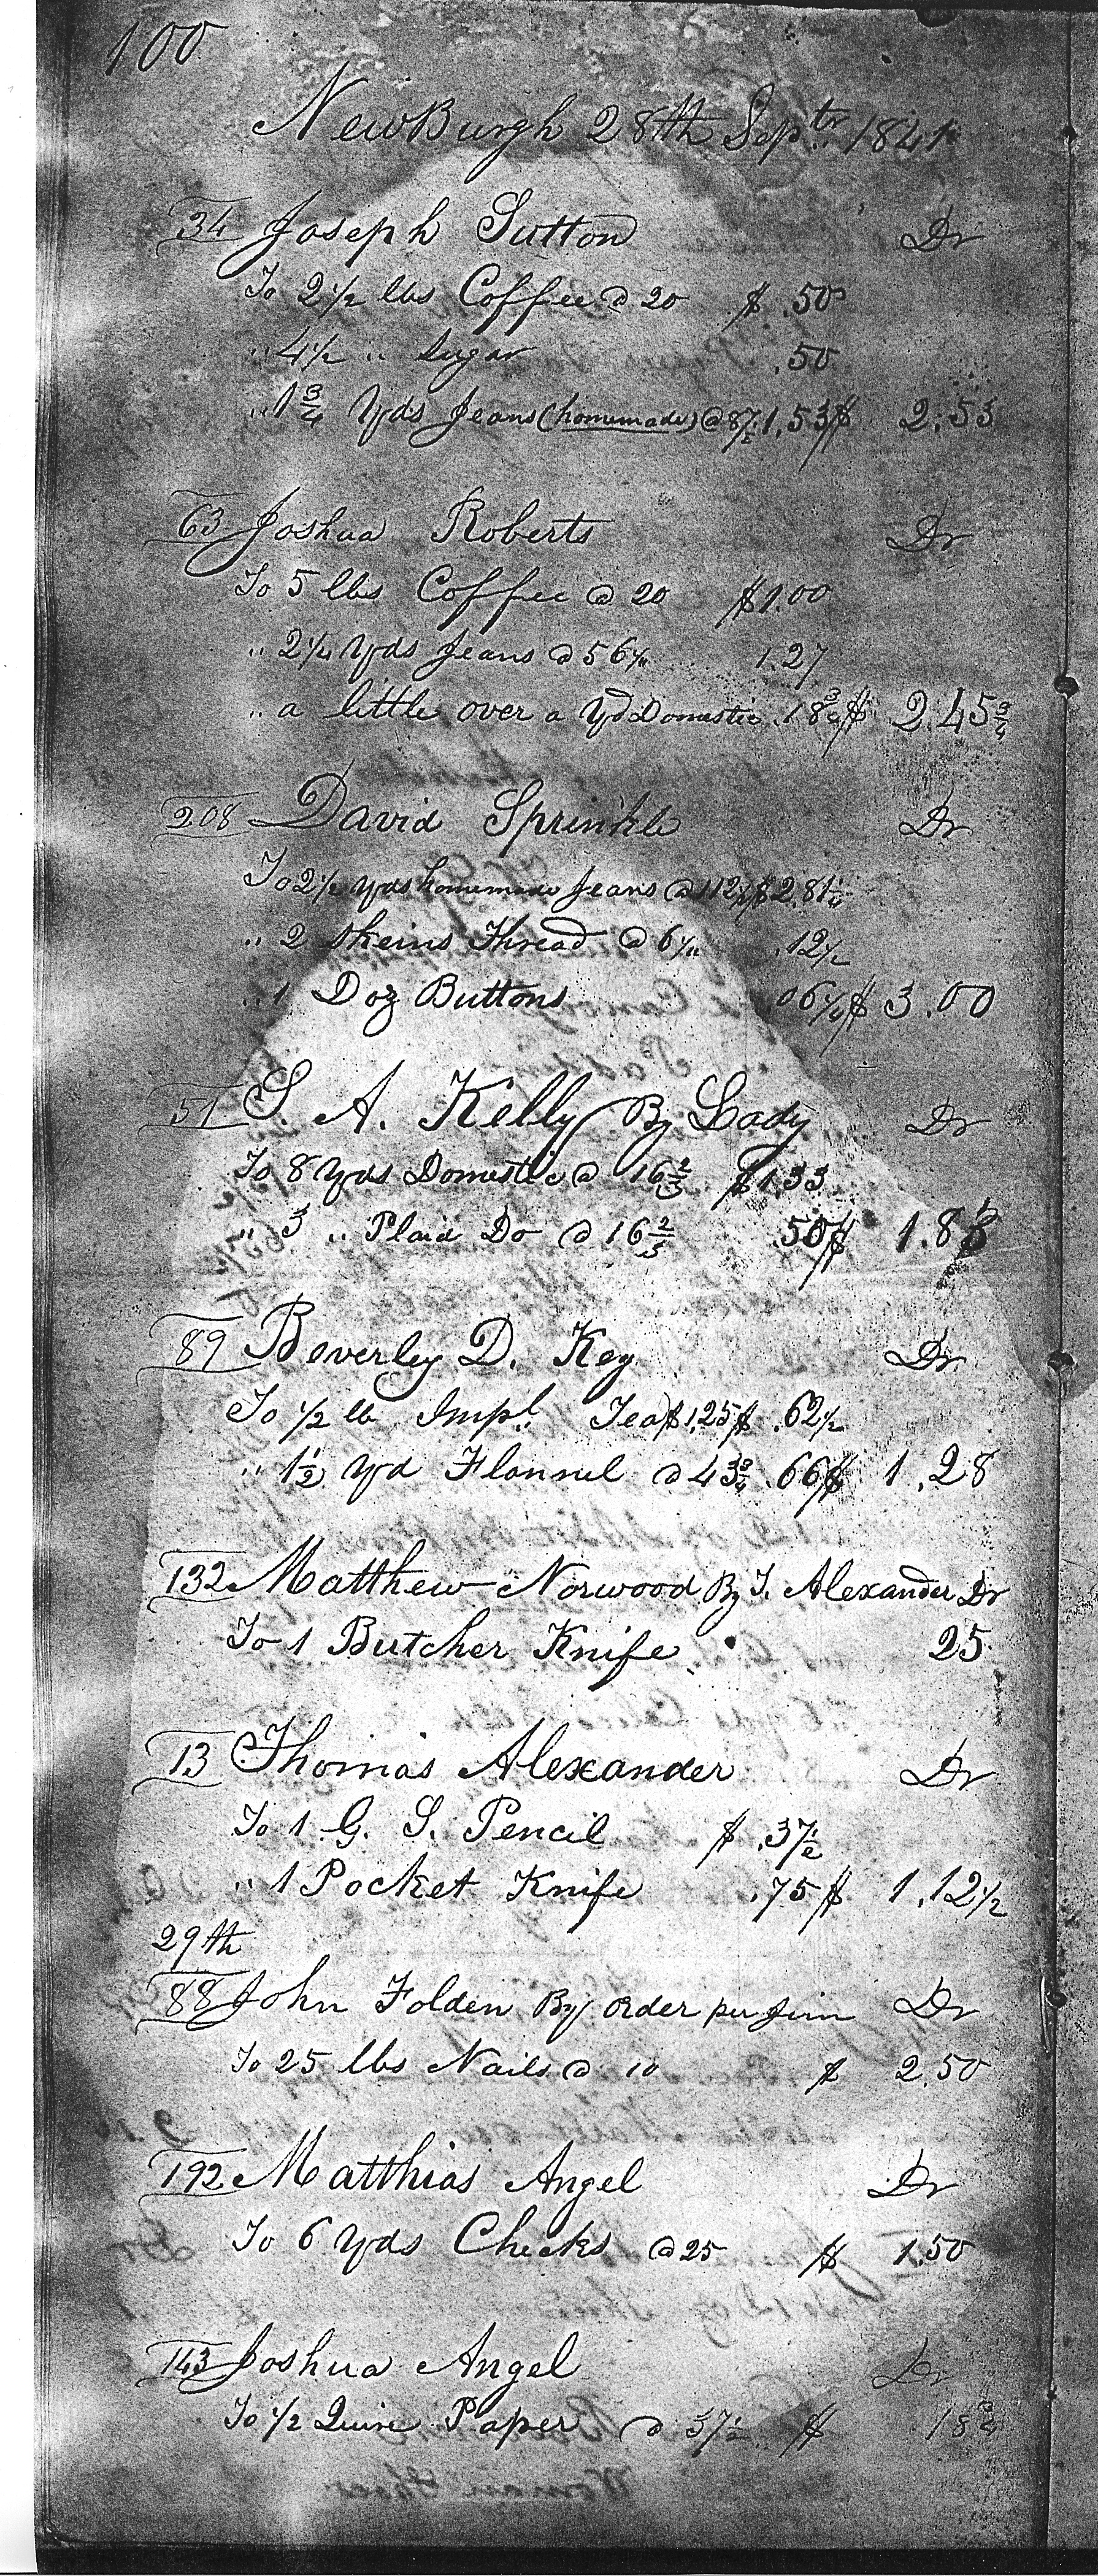 100
NewBurgh 28th Sept.r 1841
34 Joseph Sutton Dr
To 2 1/2 lbs Coffee @ 20 $ .50
" 4 1/2 " Sugar .50
" 1 3/4 Yds Jeans (homemade) @ 87 1/2 1.53 $ 2.53
63 Joshua Roberts Dr
To 5 lbs Coffee @ 20 $1.00
" 2 1/4 Yds Jeans @ 56 1/4 1.27
" a little over a Yd Domestic .18 3/4 $ 2.45 3/4
208 David Sprinkle Dr
To 2 1/2 yds homemade Jeans @ 112 1/2 $2.81 1/4
" 2 Skeins Thread @ 6 1/4 .12 1/2
" 1 Doz Buttons 06 1/4 $ 3.00
51 S. A. Kelly By Lady Dr
To 8 Yds Domestic @ 16 2/3 $1.33
" 3 " Plaid Do @ 16 2/3 .50 $ 1.83
89 Beverley D. Key Dr
To 1/2 lb Impl. Tea $1.25 $ .62 1/2
" 1 1/2 Yd Flannel @ 43 3/4 .66 $ 1.28
132 Matthew Norwood By T. Alexander Dr
To 1 Butcher Knife 25
13 Thomas Alexander Dr
To 1 G. S. Pencil $ .37 1/2
" 1 Pocket Knife .75 $ 1.12 1/2
29th
88 John Folden By Order per Jim Dr
To 25 lbs Nails @ 10 $ 2.50
192 Matthias Angel Dr
To 6 Yds Checks @ 25 $ 1.50
143 Joshua Angel Dr
To 1/2 Quire Paper @ 37 1/2 $ 18 3/4